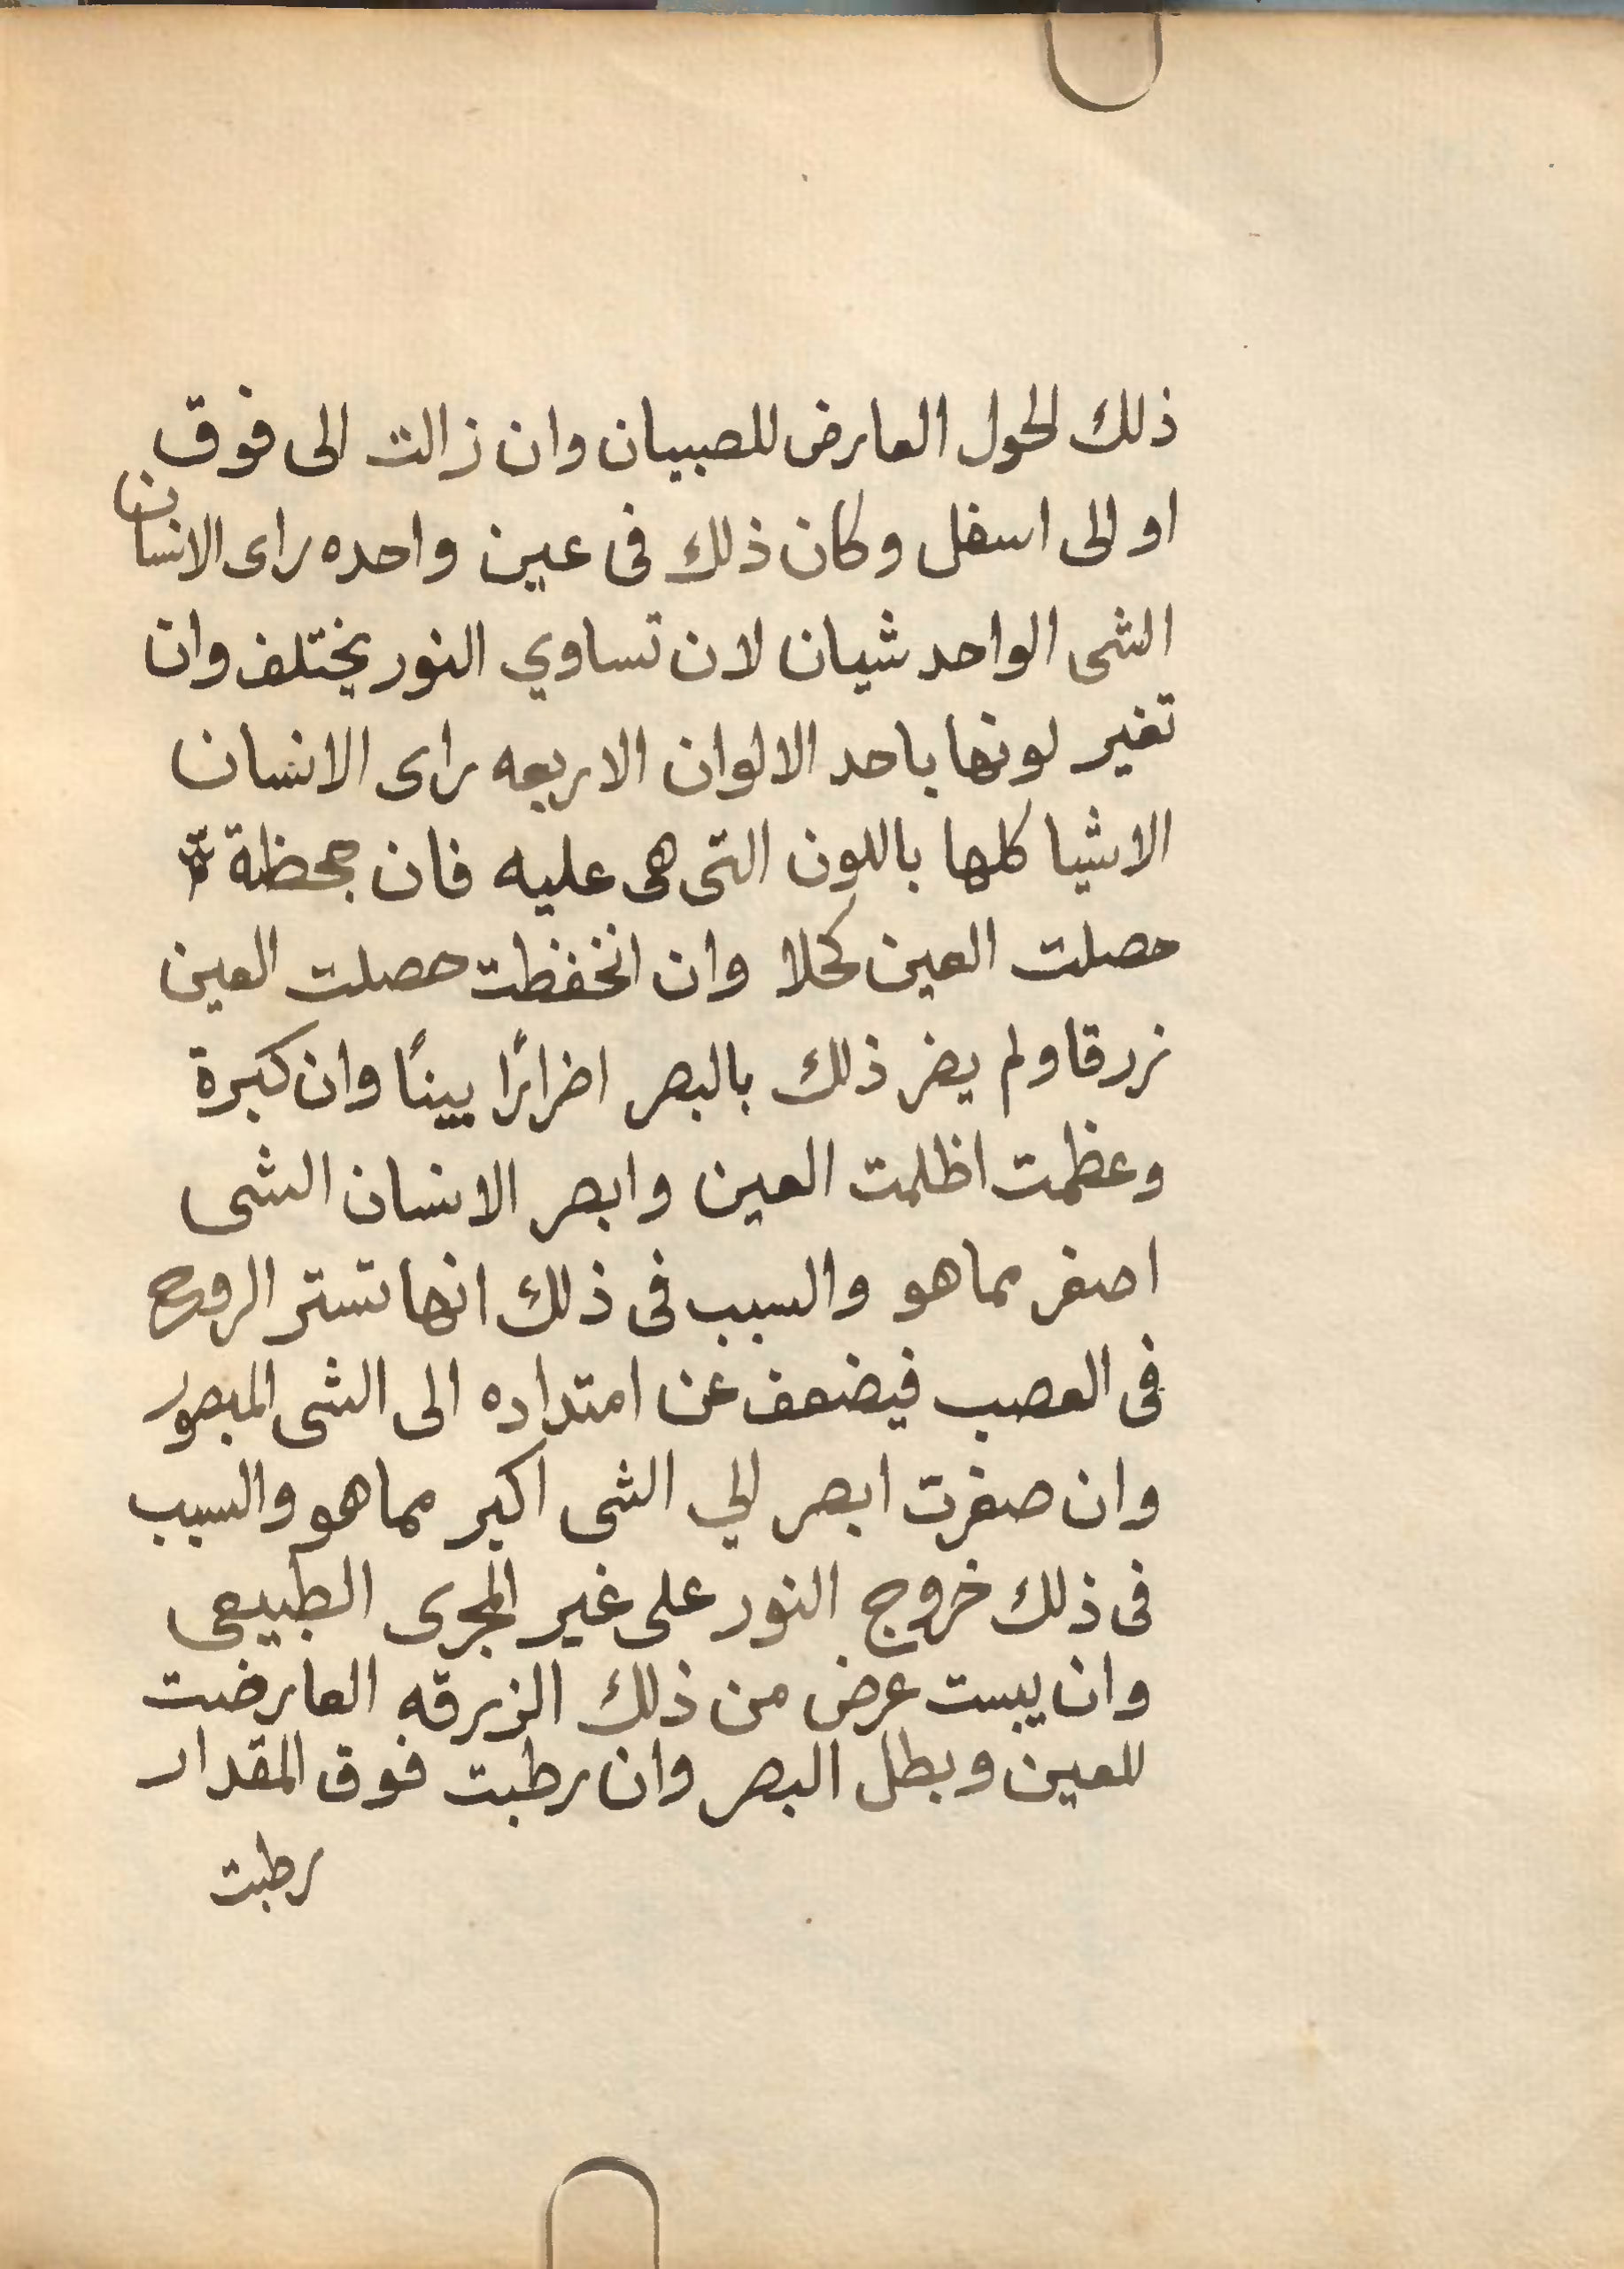 ذلك الحول العارض للصبيان وان زالت الى فوق
او الى اسفل وكان ذلك فى عين واحده راى الانسان
الشى الواحد شيان لان تساوي النور يختلف وان
تغير لونها باحد الالوان الاربعه راى الانسان
الاشيا كلها باللون التى هى عليه فان جحظة
حصلت العين كحلا وان انخفظت حصلت العين
زرقا ولم يضر ذلك بالبصر اضرارًا بينًا وان كبرة
وعظمت اظلمت العين وابصر الانسان الشى
اصغر مما هو والسبب فى ذلك انها تستر الروح
فى العصب فيضعف عن امتداده الى الشى المبصور
وان صغرت ابصر الي الشى اكبر مما هو والسبب
فى ذلك خروج النور على غير المجرى الطبيعى
وان يبست عرض من ذلك الزرقه العارضت
للعين وبطل البصر وان رطبت فوق المقدار
رطبت